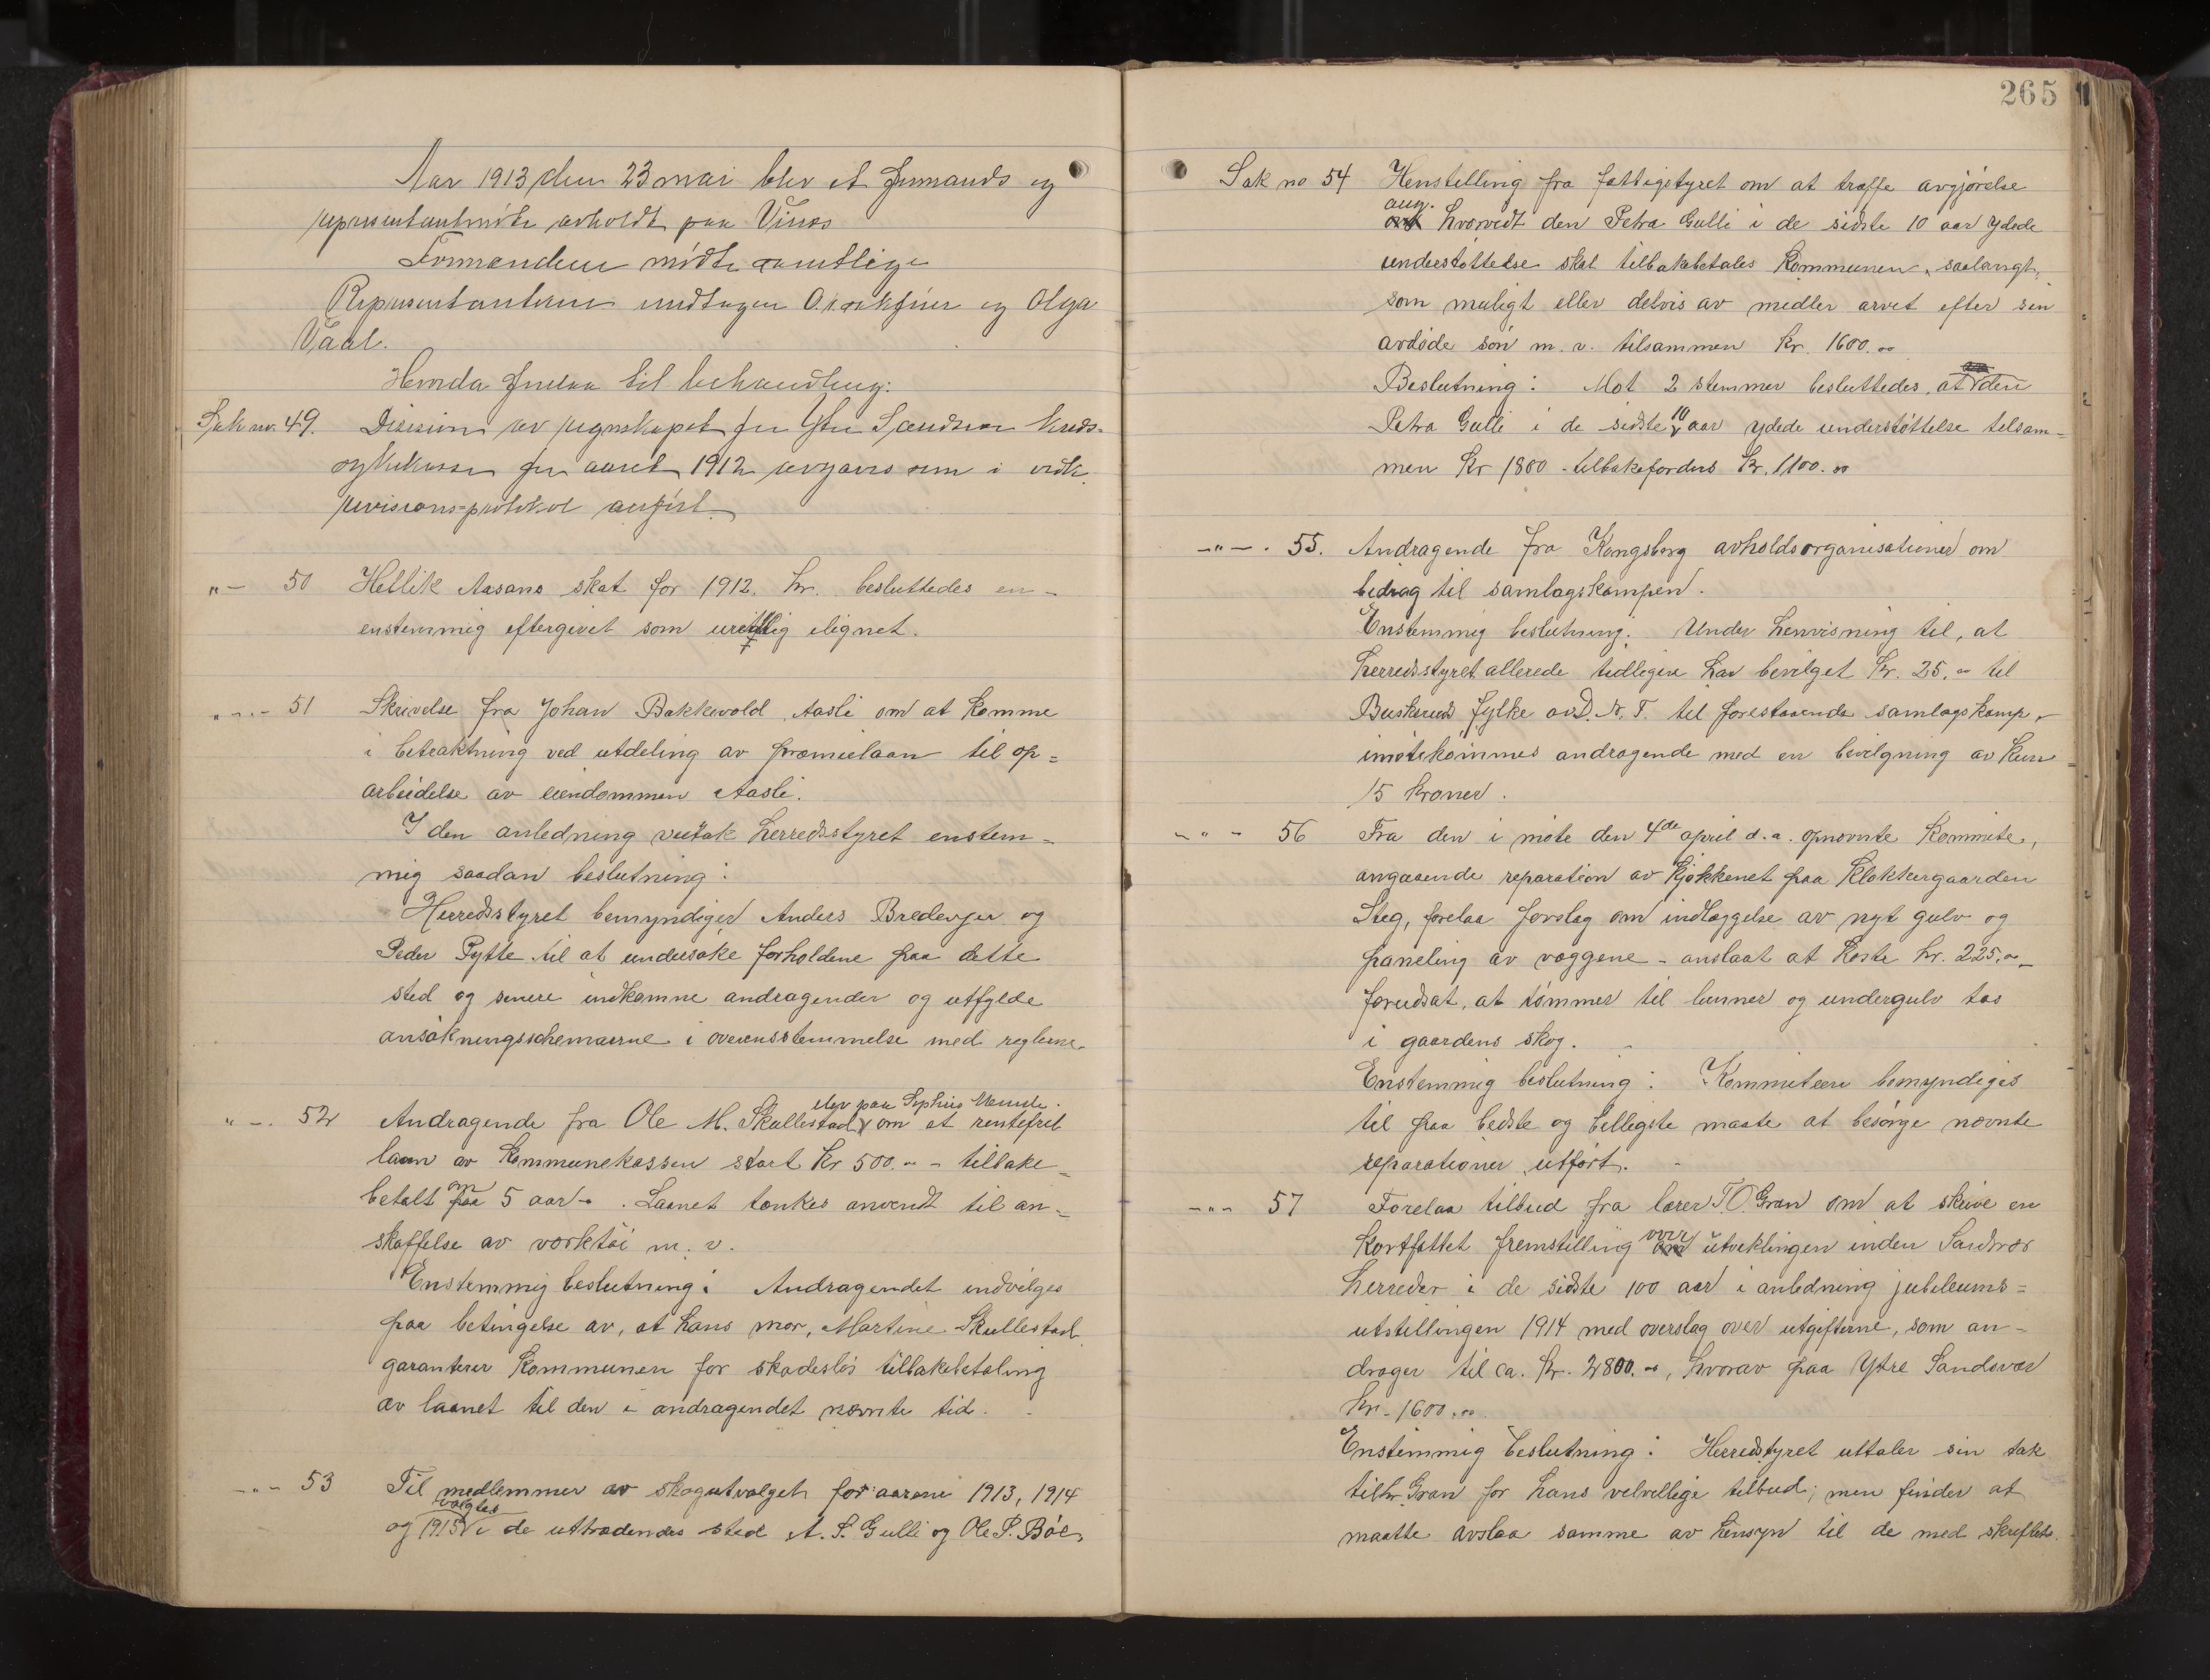 Aar 1913 den 23 mai blev et formands og
representantmöte avholdt paa Vinæs
Formændene mödte samtlige
Representanterne undtagen O. og Olga
Vaal.
Hvorda forelaa til behandling:
Sak no. 49. Decision av regnskapet for Ytre Sandsvær kreds-
sykekasse for aaret 1912 avgaves som i vedk.
revisions=protokol anfört.
" — 50 Hellik Aasans skat for 1912. kr. besluttedes en-
enstemmig eftergivet som urettelig ilignet.
" — 51 Skrivelse fra Johan Bakkevold Aasli om at komme
i betraktning ved utdeling av præmielaan til op=
arbeidelse av eiendommen Aasli.
I den anledning vedtok herredsstyret enstem-
mig saadan beslutning:
Herredsstyret bemyndiger Anders Bredesen og
Peder Pytte til at undersøke forholdene paa dette
sted og senere indkomne andragender og utfylde
ansökningsschemaerne i overensstemmelse med reglerne.
" — 52 Andragende fra Ole M. Skullestad elev paa Sophies Minde om et rentefrit
laan av kommunekassen stort kr 500.- - tilbake-
betalt om 5 aar - . Laanet tænkes anvendt til an-
skaffelse av værktöi m. v.
Enstemmig beslutning: Andragendet indvilges
paa betingelse av, at hans mor, Martine Skullestad
garanterer kommunen for skadeslös tilbakebetaling
av laanet til den i andragendet nævnte tid.
- " - 53 Til medlemmer av skogutvalget for aarene 1913, 1914
og 1915 valgtes i de uttrædendes sted A. S. Gulli og Ole P. Böe,
265
Sak no 54 Henstilling fra fattigstyret om at træffe avgjörelse
ang. hvorvidt den Petra Gulli i de sidste 10 aar ydede
understöttelse skal tilbakebetales kommunen, saalangt,
som muligt eller delvis av midler arvet efter sin
avdöde sön m. v. tilsammen kr. 1600.00
Beslutning: Mot 2 stemmer besluttedes, at den
Petra Gulli i de sidste 10 aar ydede understöttelse tilsam-
men kr 1800 - tilbakefordres kr. 1100.00
—"—. 55. Andragende fra Kongsberg avholdsorganisationer om
bidrag til samlagskampen.
Enstemmig beslutning. Under henvisning til, at
herredsstyret allerede tidligere har bevilget kr. 25.- til
Buskerud fylke av D. N. T. til forestaaende samlagskamp,
imötekommes andragende med en bevilgning av kun
15 kroner.
- " - 56 Fra den i möte den 4de april d. a. opnævnte komite,
angaaende reparation av kjökkenet paa klokkergaarden
Steg, forelaa forslag om indlæggelse av nyt gulv og
paneling av væggene - anslaat at koste kr. 225.-
forudsat, at tömmer til lunner og undergulv tas
i gaardens skog.
Enstemmig beslutning: Kommiteen bemyndiges
til paa bedste og billigste maate at besörge nævnte
reparationer utfört.
-"- 57 Forelaa tilbud fra lærer T. O. Gran om at skrive en
kortfattet fremstilling over utviklingen inden Sandsvær
herreder i de sidste 100 aar i anledning jubilæums=
utstillingen 1914 med overslag over utgifterne, som an-
drager til ca. kr. 2800.-, hvorav paa Ytre Sandsvær
kr. 1600.00.
Enstemmig beslutning: Herredstyret uttaler sin tak
til hr. Gran for hans velvillige tilbud; men finder at
maatte avslaa samme av hensyn til de med skriftets